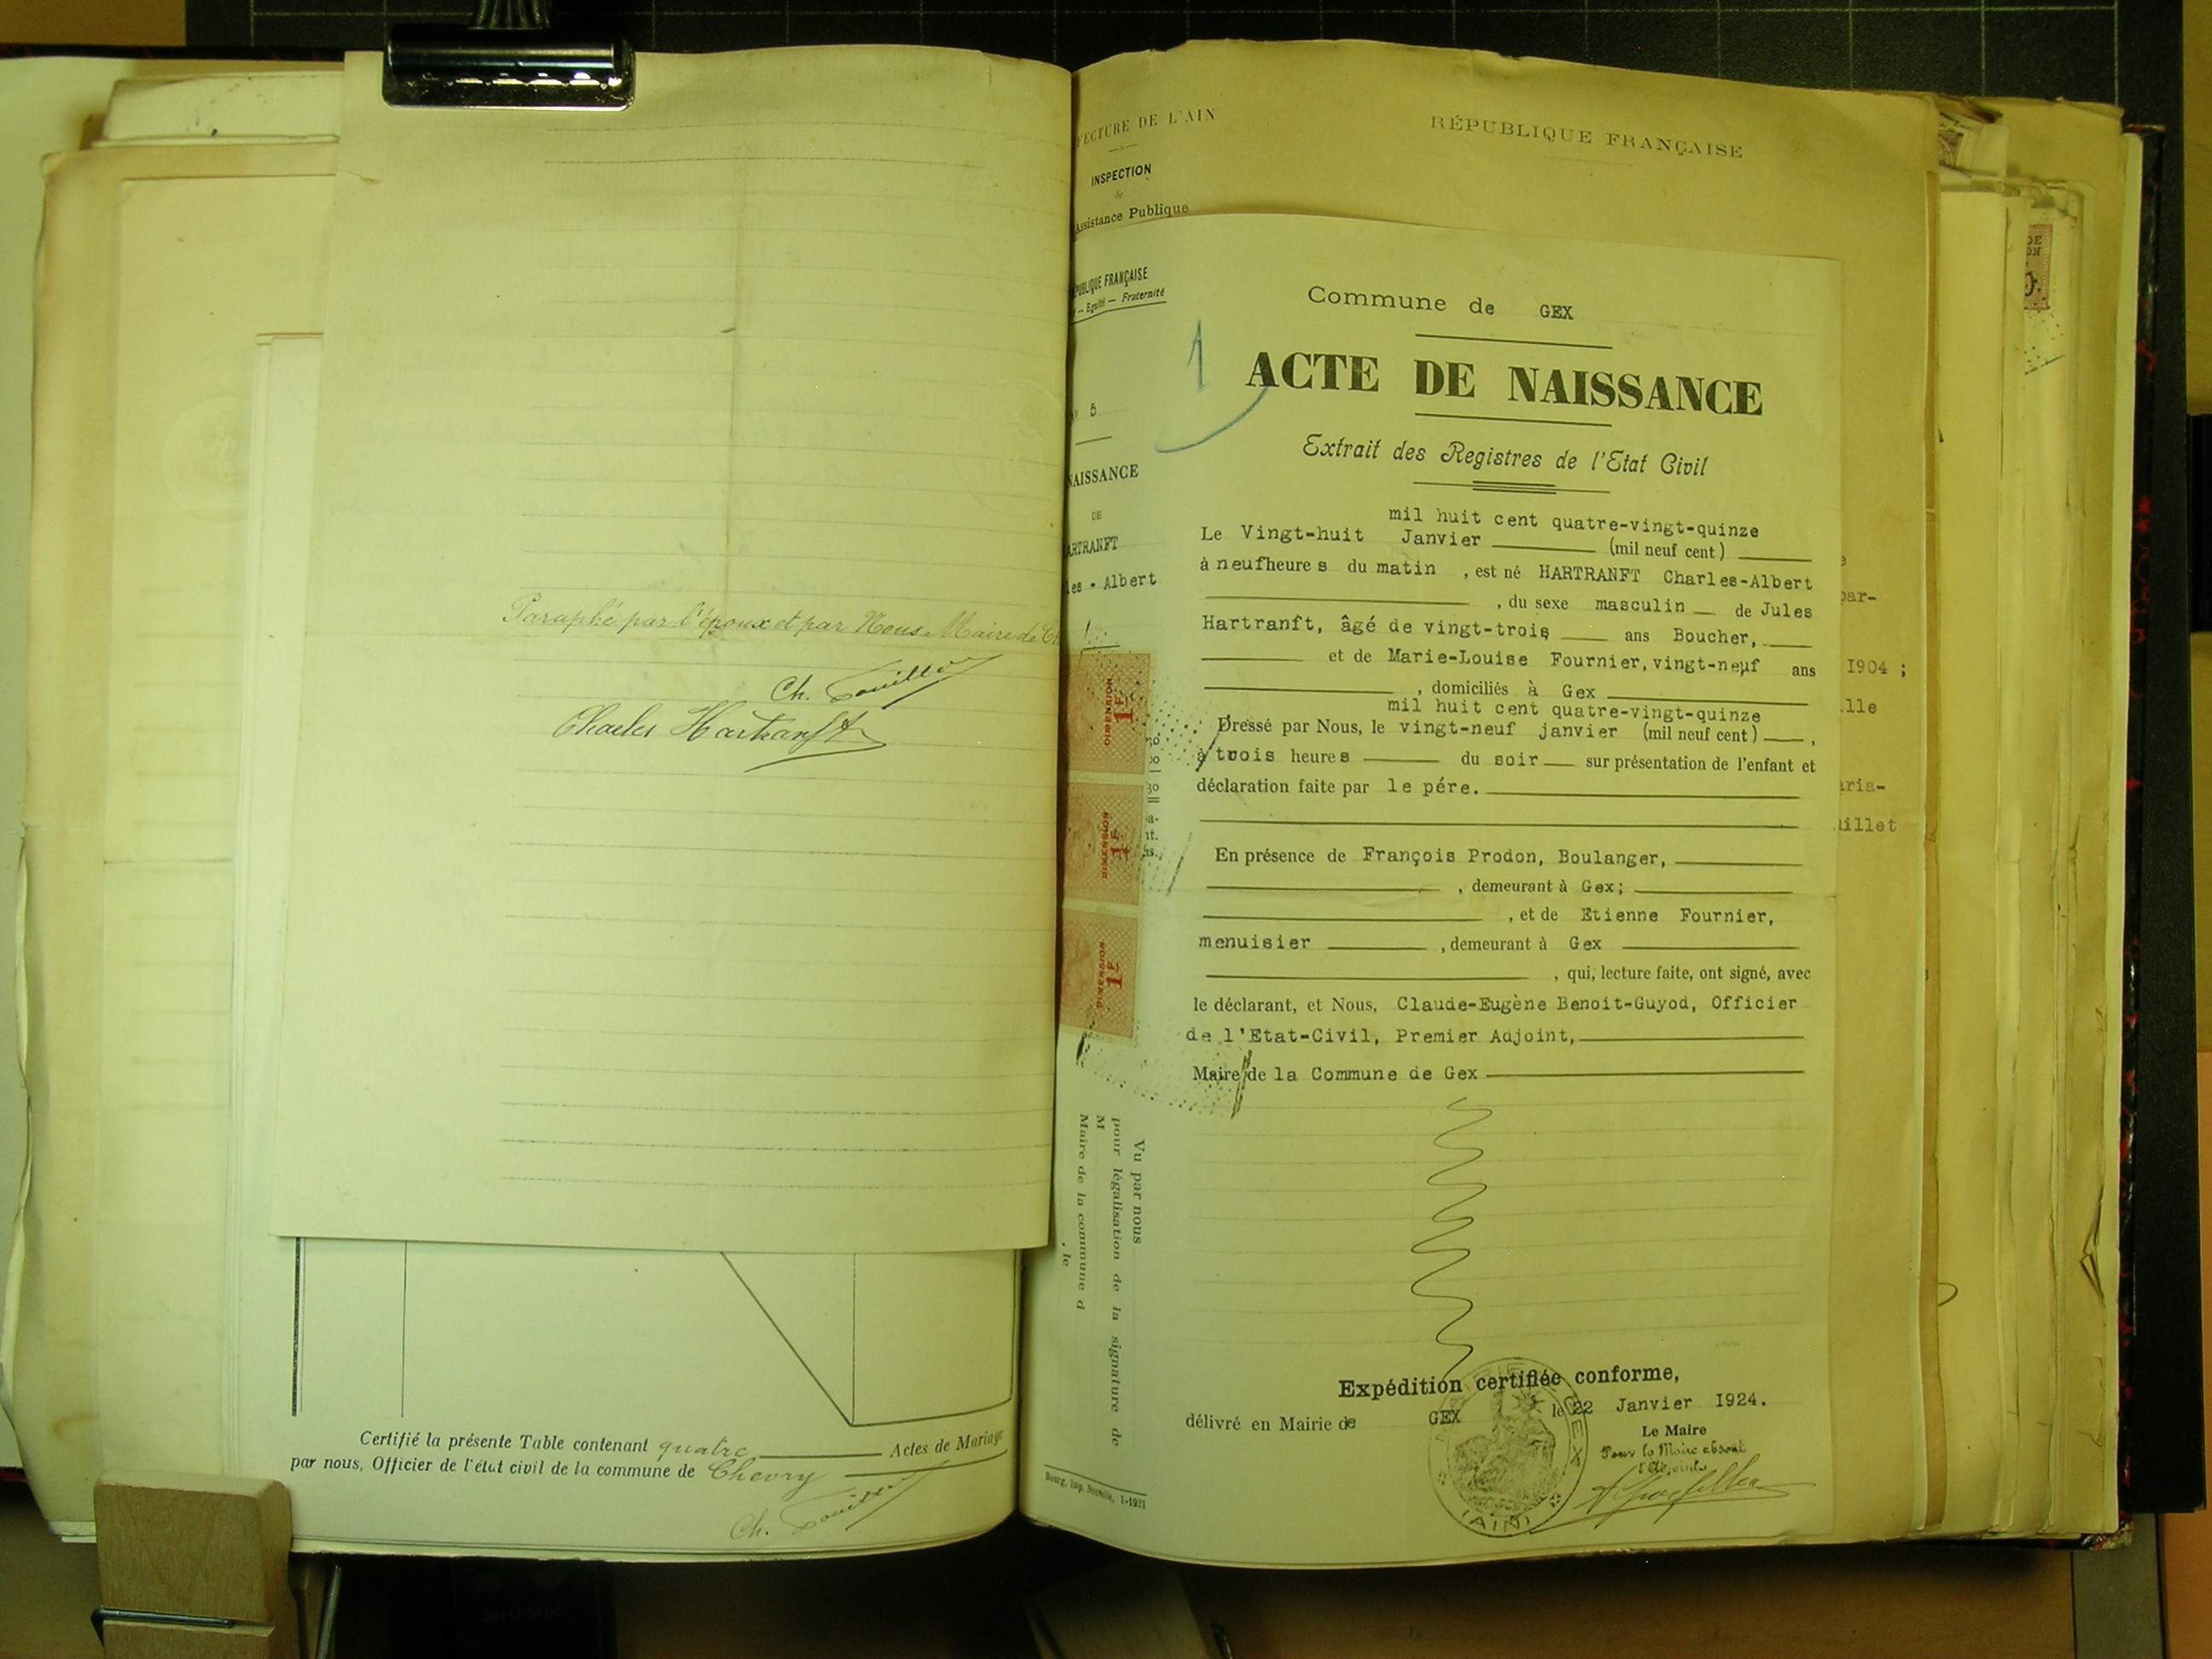 Paraphé par l'époux et par Nous Maire de
Ch.
Charles Hartranft
Certifié la présente Table contenant quatre Actes de Mariage
par nous, Officier de l'état civil de la commune de Chevry
Ch.
FECTURE DE L'AIN
RÉPUBLIQUE FRANÇAISE
INSPECTION
de
Assistance Publique
PUBLIQUE FRANÇAISE
— Egalité — Fraternité
5
NAISSANCE
DE
ARTRANFT
les - Albert
DIMENSION
1F
DIMENSION
1F
DIMENSION
1F
Vu par nous
pour légalisation de la signature de
M
Maire de la commune d
, le
Bourg, Imp. Nouvelle, 1-1921
1
Commune de GEX
ACTE DE NAISSANCE
Extrait des Registres de l'Etat Civil
mil huit cent quatre-vingt-quinze
Le Vingt-huit Janvier (mil neuf cent)
à neuf heures du matin , est né HARTRANFT Charles-Albert
, du sexe masculin de Jules
Hartranft, âgé de vingt-trois ans Boucher,
et de Marie-Louise Fournier, vingt-neuf ans
, domiciliés à Gex
mil huit cent quatre-vingt-quinze
Dressé par Nous, le vingt-neuf janvier (mil neuf cent) ,
à trois heures du soir sur présentation de l'enfant et
déclaration faite par le pére.
En présence de François Prodon, Boulanger,
, demeurant à Gex;
, et de Etienne Fournier,
menuisier , demeurant à Gex
, qui, lecture faite, ont signé, avec
le déclarant, et Nous, Claude-Eugène Benoit-Guyod, Officier
de l'Etat-Civil, Premier Adjoint,
Maire de la Commune de Gex
Expédition certifiée conforme,
délivré en Mairie de GEX le 22 Janvier 1924.
Le Maire
Pour le Maire absent
l'Adjoint
GEX
(AIN)
par-
1904 ;
lle
aria-
uillet